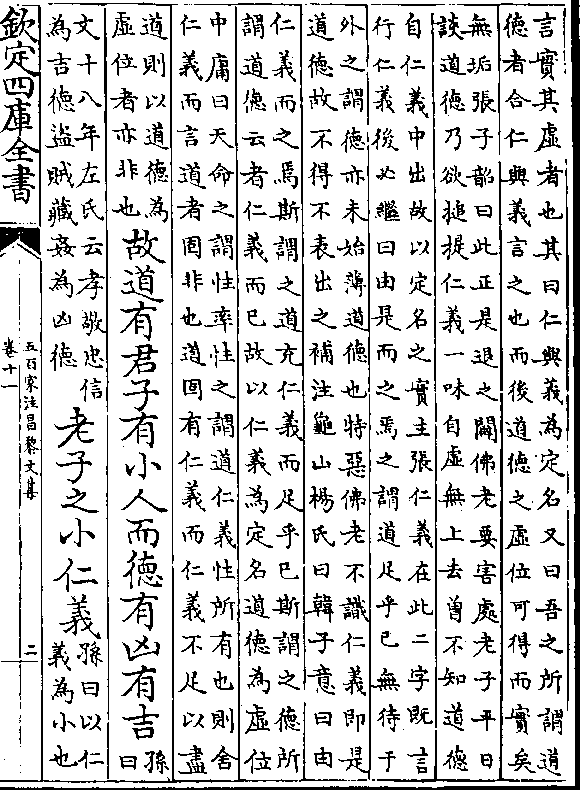 言實其虛者也其曰仁與義為定名又曰吾之所謂道
德者合仁與義言之也而後道德之虛位可得而實矣
無垢張子韶曰此正是退之闢佛老要害處老子平日
談道德乃欲搥提仁義一味自虛無上去曾不知道德
自仁義中出故以定名之實主張仁義在此二字既言
行仁義後必繼曰由是而之焉之謂道足乎已無待于
外之謂德亦未始薄道德也特惡佛老不識仁義即是
道德故不得不表出之補注龜山楊氏曰韓子意曰由
仁義而之焉斯謂之道充仁義而足乎已斯謂之德所
謂道德云者仁義而已故以仁義為定名道德為虛位
中庸曰天命之謂性率性之謂道仁義性所有也則舍
仁義而言道者固非也道固有仁義而仁義不足以盡
道則以道德為
虛位者亦非也
故道有君子有小人而德有凶有吉
孫
曰
文十八年左氏云孝敬忠信
為吉德盜賊藏姦為凶德
老子之小仁義
孫曰以仁
義為小也
欽定四庫全書
五百家注昌黎文集
卷十一
二